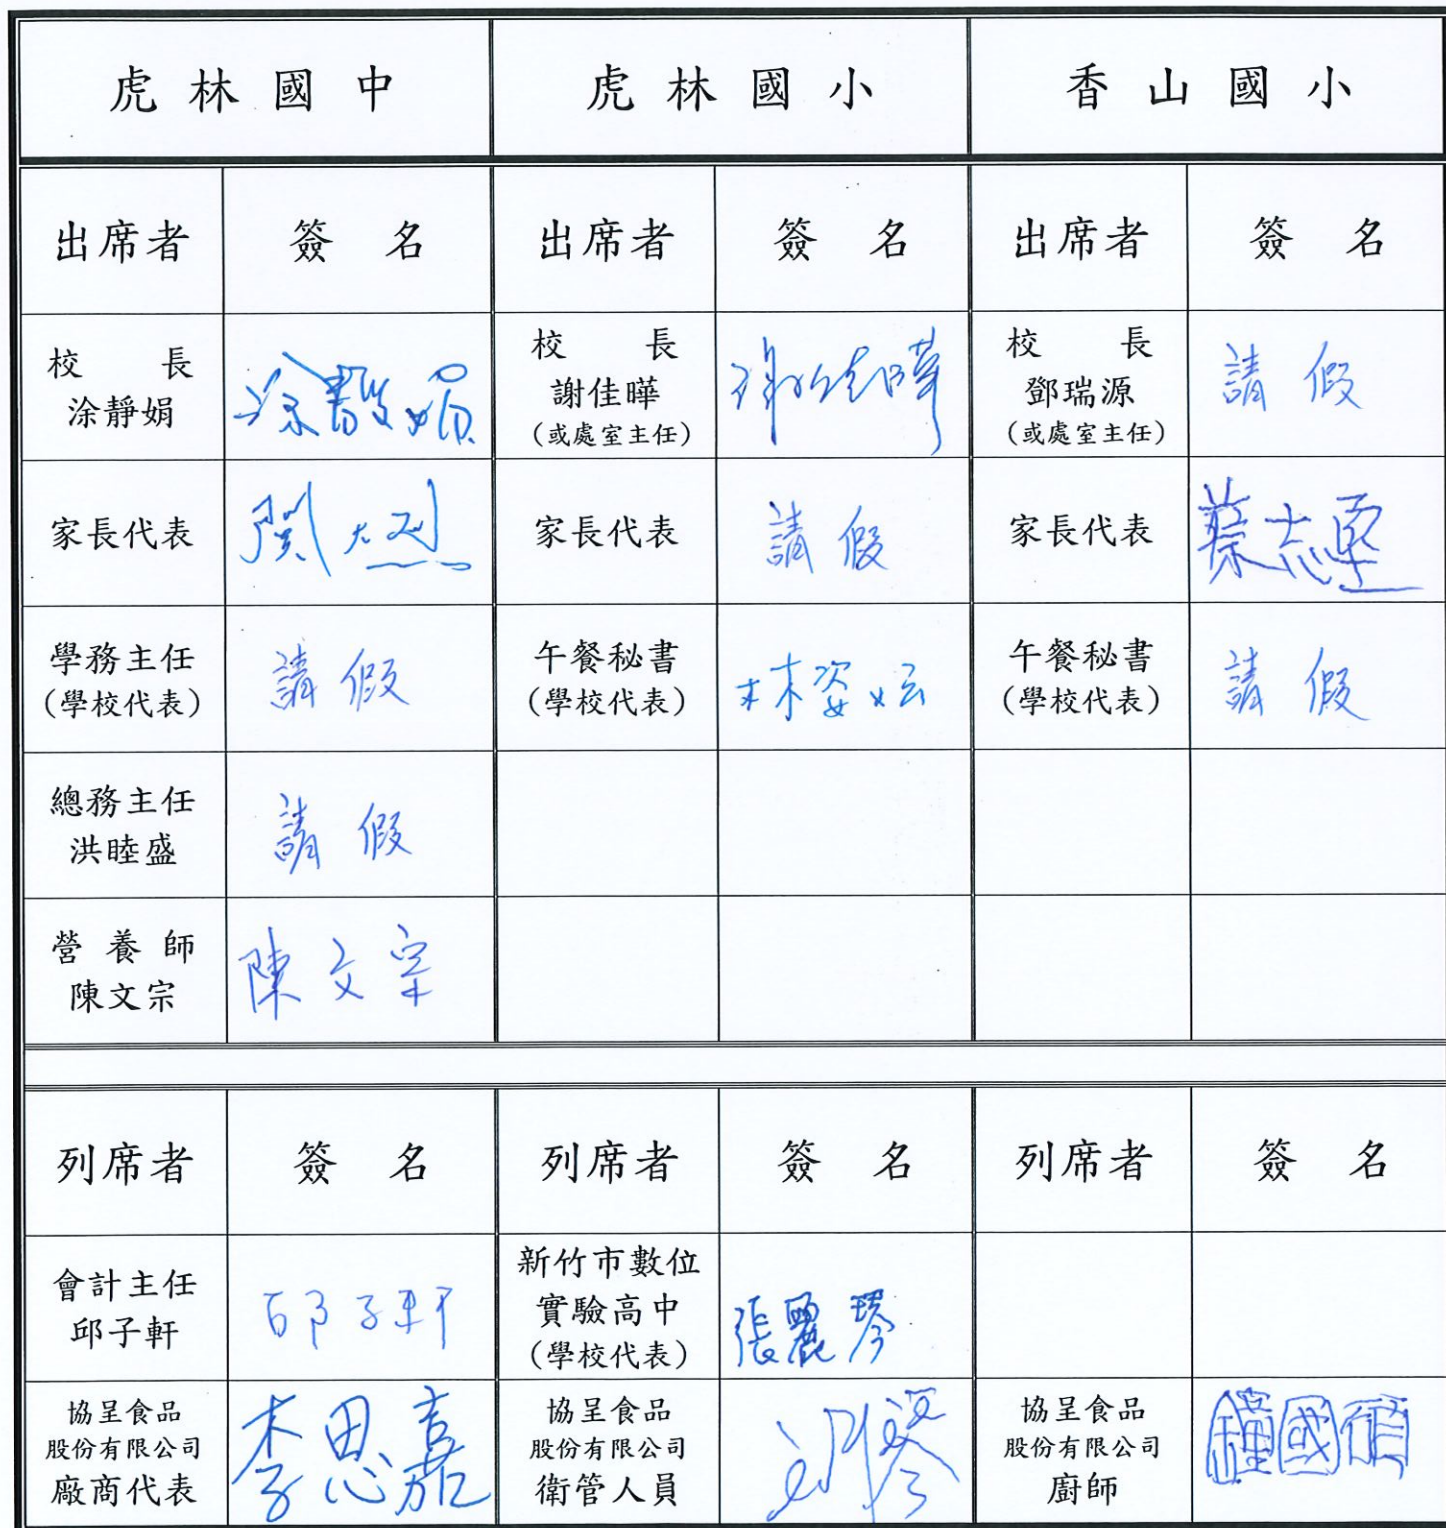 虎林國中 虎林國小 香山國小
出席者 簽名 出席者 簽名 出席者 簽名
校長
涂靜娟
涂靜娟
校長
謝佳曄
(或處室主任)
謝佳曄
校長
鄧瑞源
(或處室主任)
請假
家長代表
家長代表 請假
家長代表 蔡志
學務主任
(學校代表)
請假
午餐秘書
(學校代表)
林姿妘
午餐秘書
(學校代表)
請假
總務主任
洪睦盛
請假
營養師
陳文宗
陳文宗
列席者 簽名 列席者 簽名 列席者 簽名
會計主任
邱子軒
邱子軒
新竹市數位
實驗高中
(學校代表)
張麗琴
協呈食品
股份有限公司
廠商代表
李思嘉
協呈食品
股份有限公司
衛管人員
協呈食品
股份有限公司
廚師
鍾國